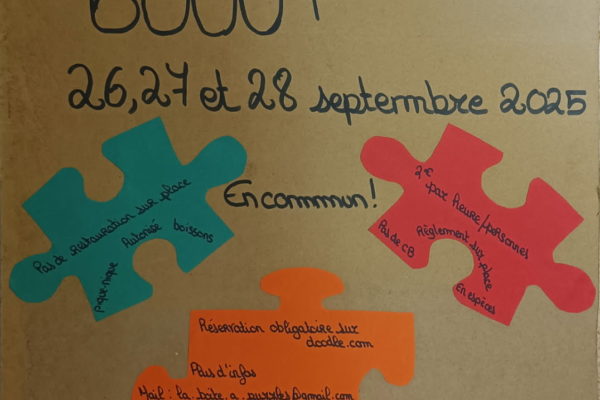 26, 27 et 28 septembre 2025
En commun !
Pas de restauration sur place
Autorisé boissons
pique-nique
2€
par heure/personnes
Règlement sur place
Pas de CB
En espèces
Réservation obligatoire sur
doodle.com
Plus d'infos
Mail : la.boite.a.puzzles@gmail.com